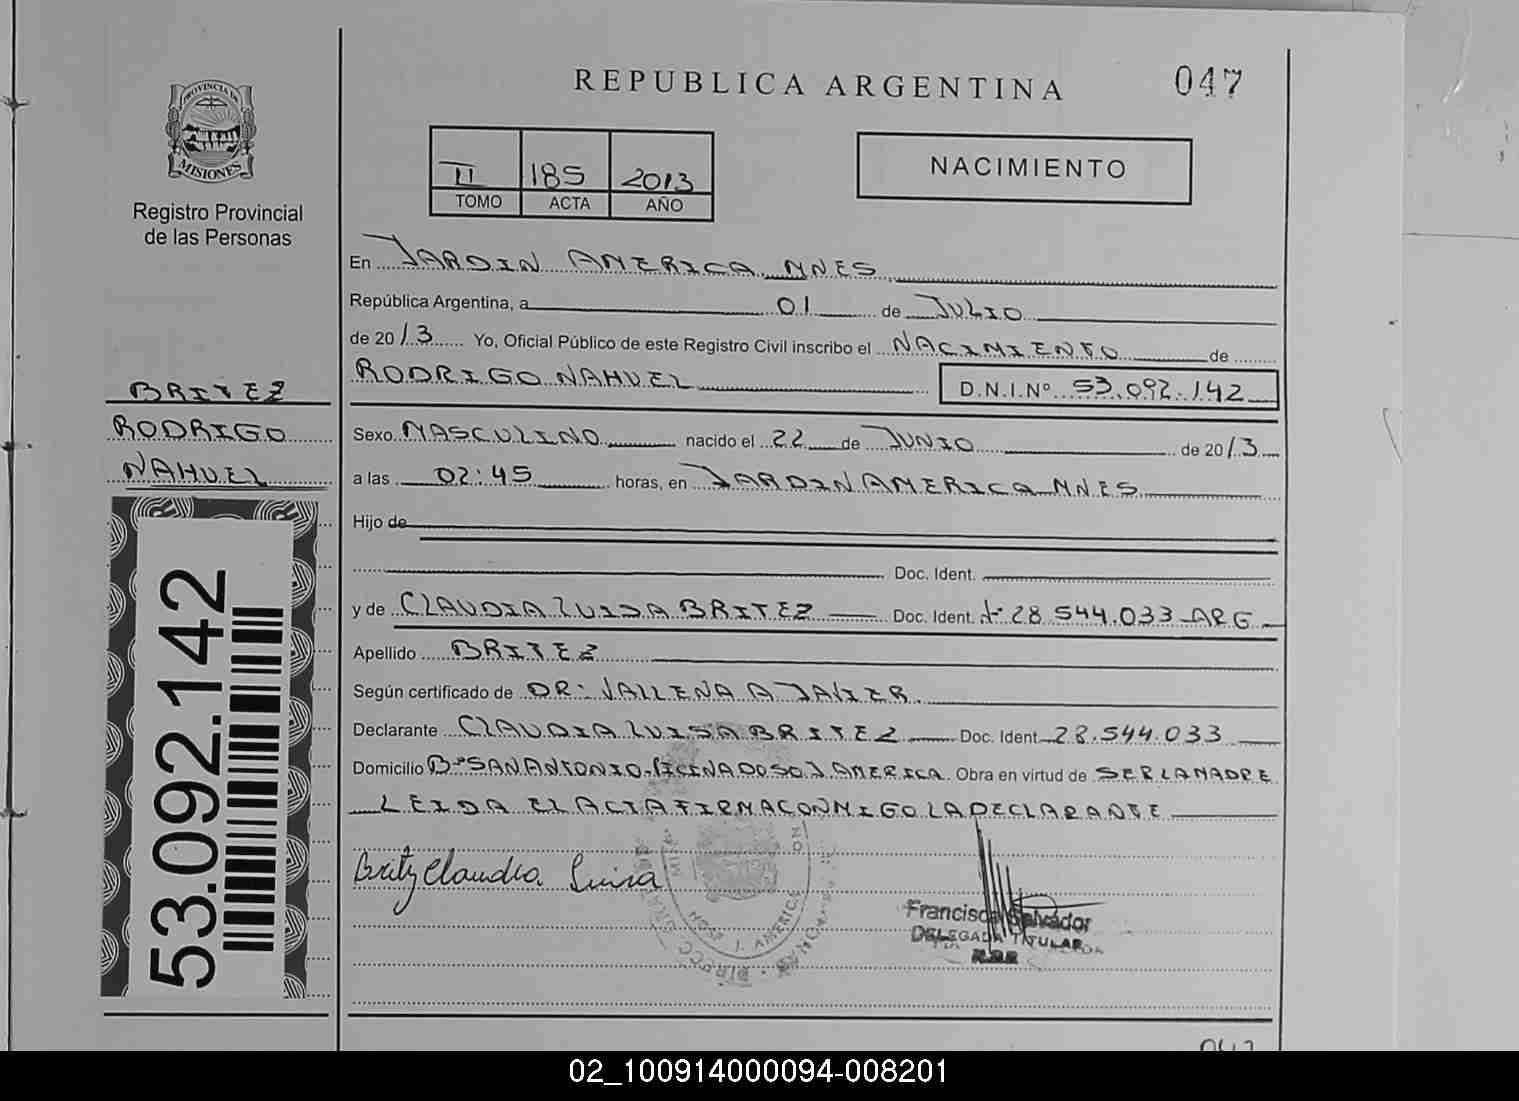 REPUBLICA ARGENTINA
047
PROVINCIA DE
MISIONES
Registro Provincial
de las Personas
II 185 2013
TOMO ACTA AÑO
NACIMIENTO
BRITEZ
RODRIGO
NAHUEL
53.092.142
En JARDIN AMERICA MNES
República Argentina, a 01 de JULIO
de 2013 Yo, Oficial Público de este Registro Civil inscribo el NACIMIENTO de
RODRIGO NAHUEL D.N.I.Nº 53.092.142
Sexo MASCULINO nacido el 22 de JUNIO de 2013
a las 02:45 horas, en JARDIN AMERICA MNES
Hijo de
Doc. Ident.
y de CLAUDIA LUISA BRITEZ Doc. Ident. 28.544.033 ARG
Apellido BRITEZ
Según certificado de DR: VALLENA A JAVIER
Declarante CLAUDIA LUISA BRITEZ Doc. Ident 28.544.033
Domicilio Bº SAN ANTONIO J. AMERICA Obra en virtud de SER LA MADRE
LEIDA EL ACTA FIRMA CONMIGO LA DECLARANTE
Britz Claudia Luisa
J. AMERICA
Francisca Salvador
DELEGADA TITULAR
02_100914000094-008201